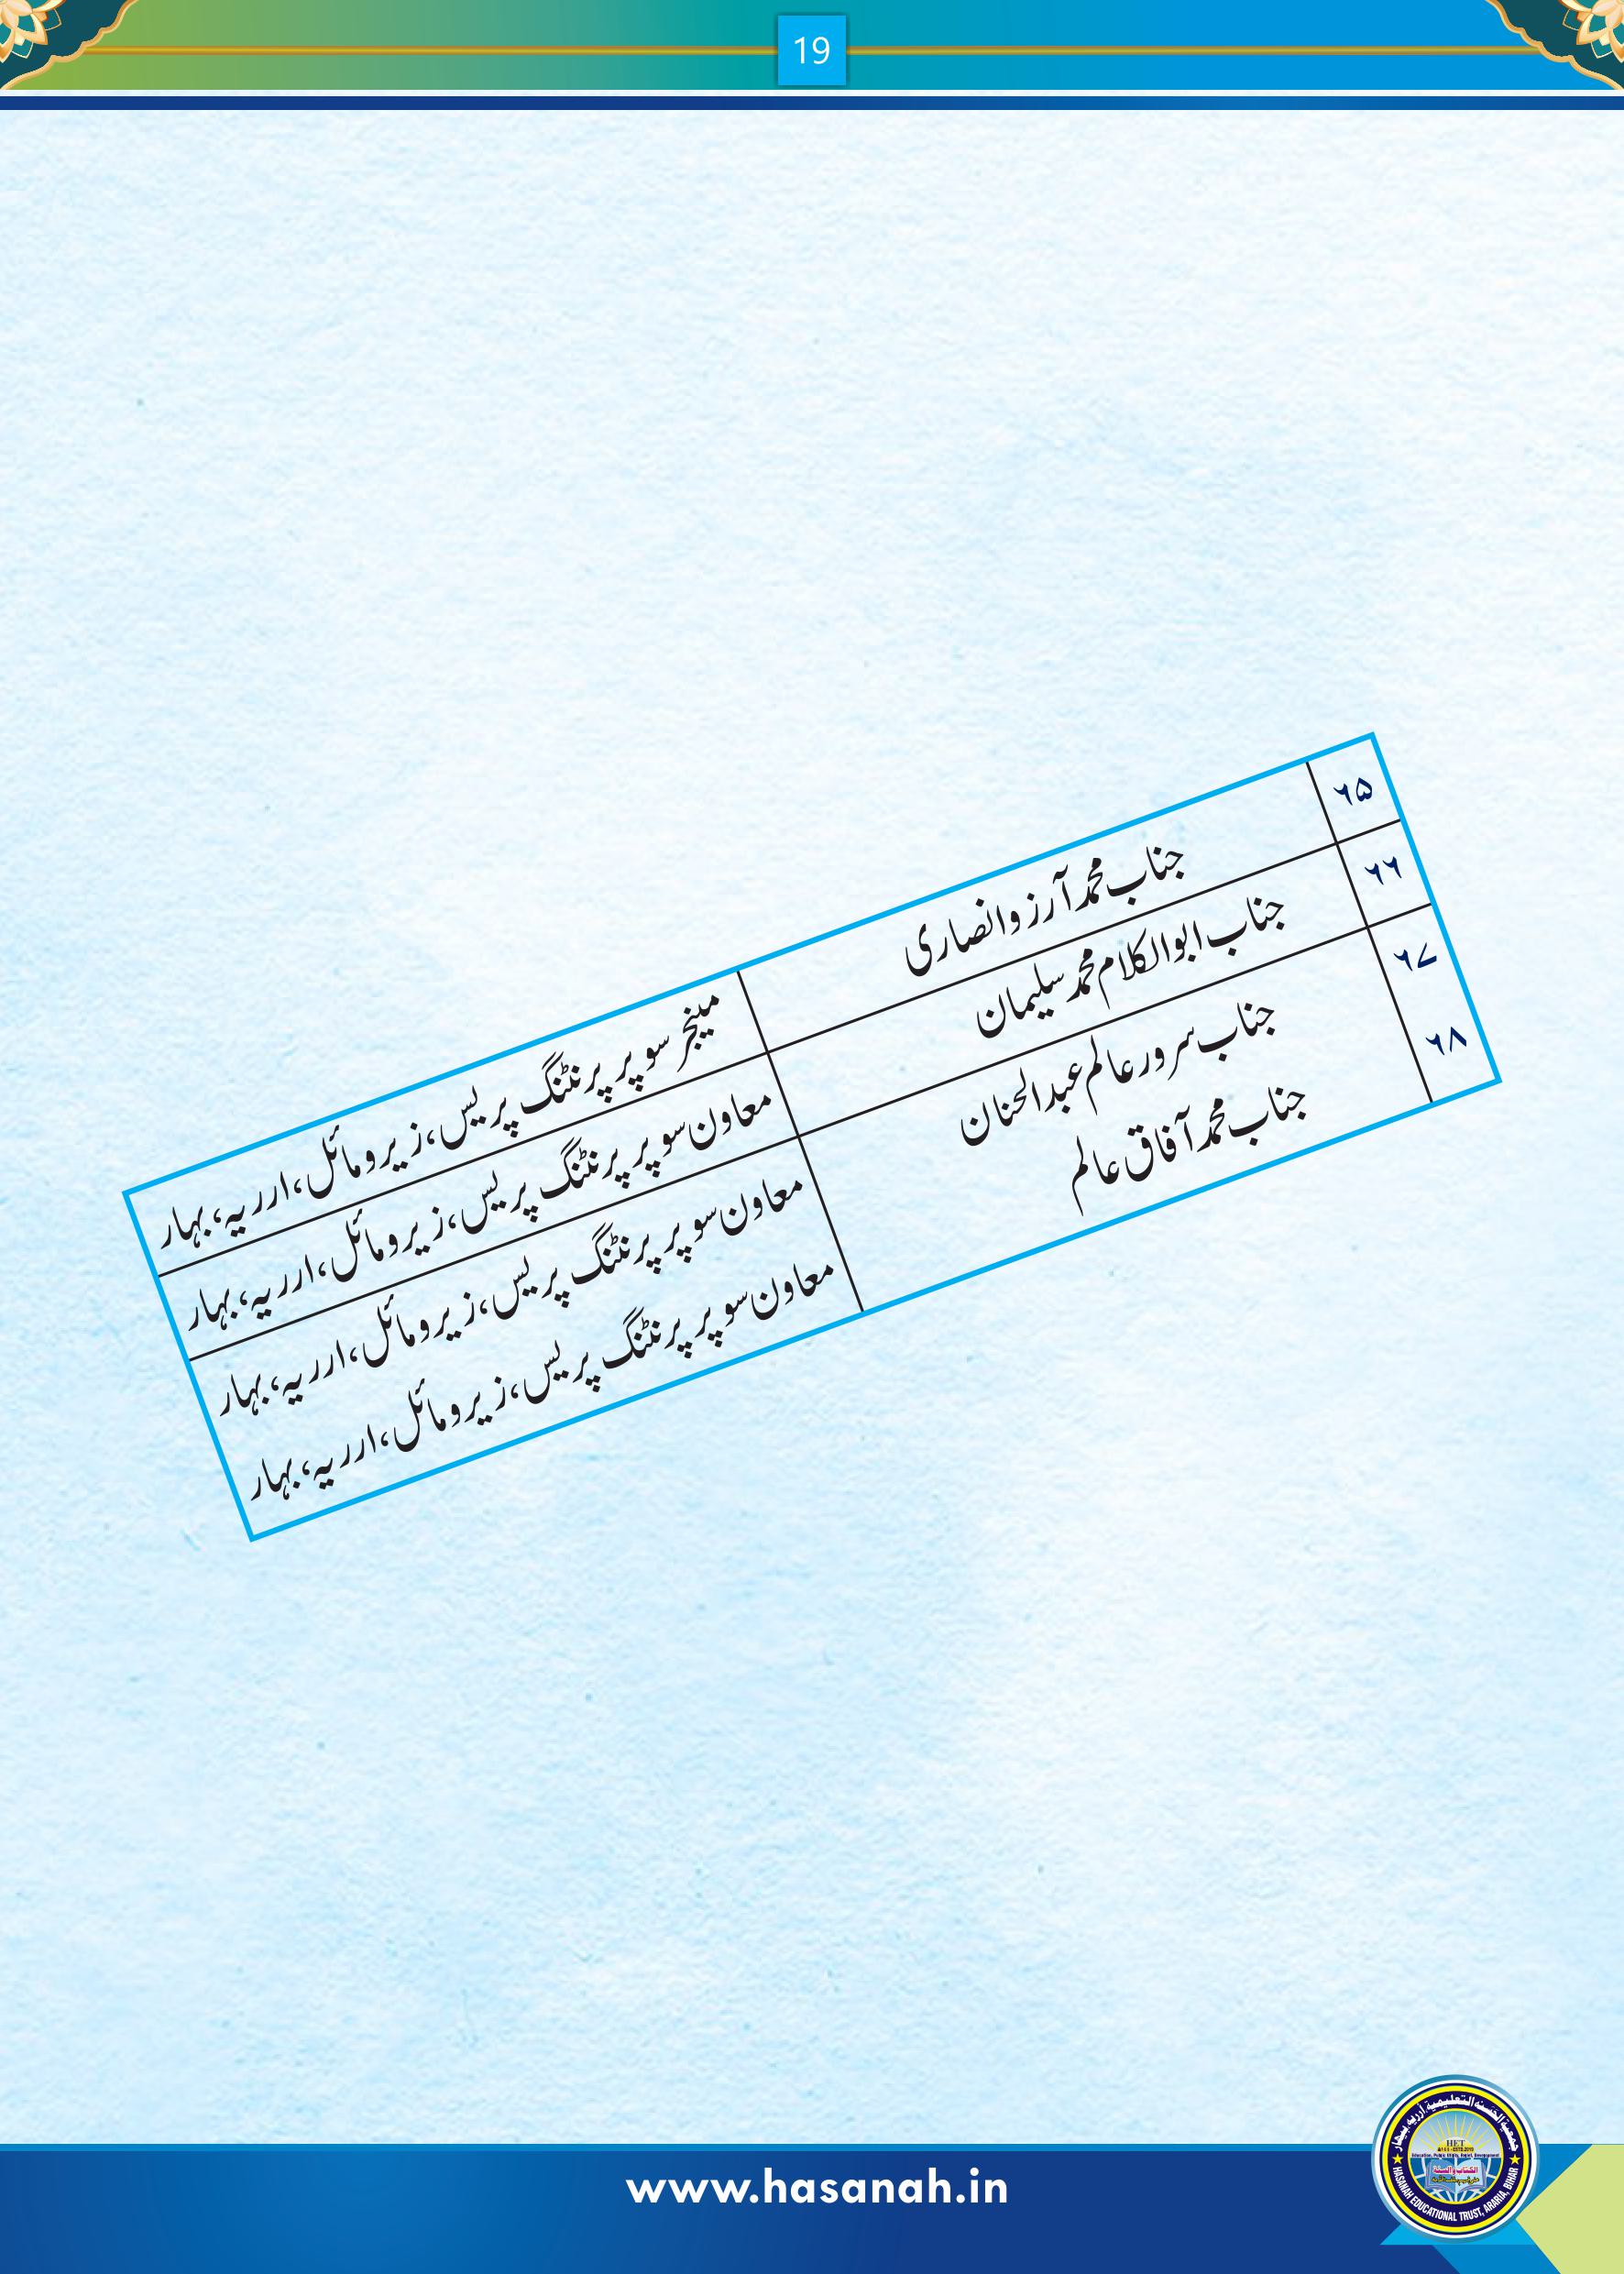 19
۶۵ جناب محمد آرزو انصاری مینیجر سوپر پرنٹنگ پریس، زیرو مائل، ارریہ، بہار
۶۶ جناب ابوالکلام محمد سلیمان معاون سوپر پرنٹنگ پریس، زیرو مائل، ارریہ، بہار
۶۷ جناب سرور عالم عبدالحنان معاون سوپر پرنٹنگ پریس، زیرو مائل، ارریہ، بہار
۶۸ جناب محمد آفاق عالم معاون سوپر پرنٹنگ پریس، زیرو مائل، ارریہ، بہار
www.hasanah.in
جمعية الحسنة التعليمية أررية بيهار
HET
الكتاب والسنة
HASANAH EDUCATIONAL TRUST, ARARIA, BIHAR